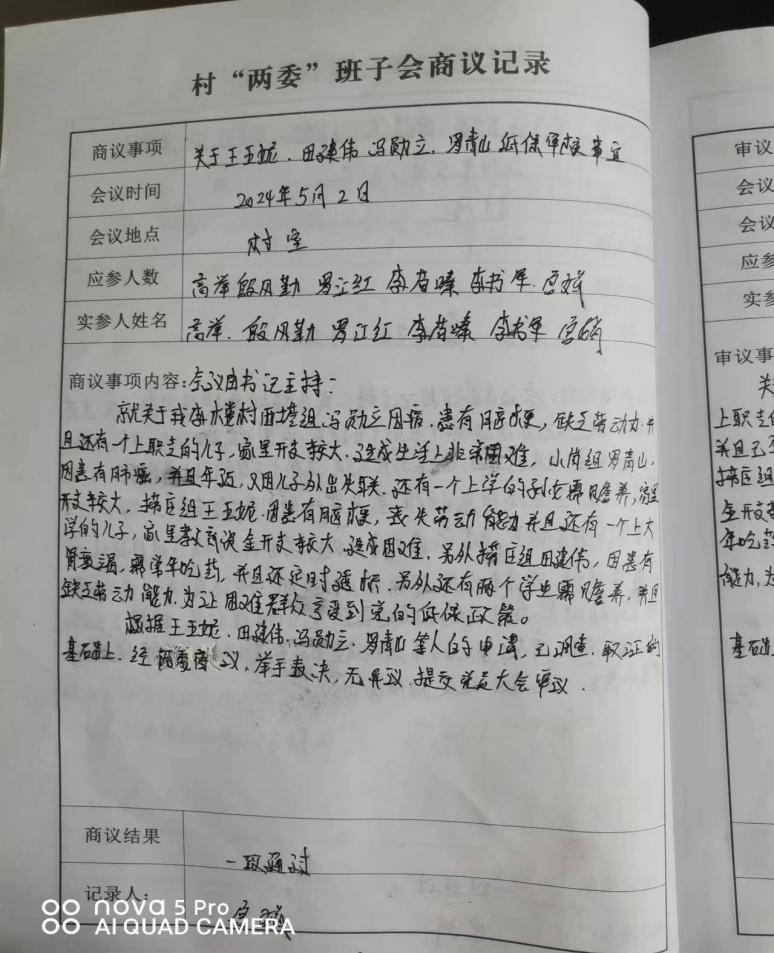 村“两委”班子会商议记录
商议事项 关于王玉妮、田建伟 冯勋立、罗青山 低保审核事宜
会议时间 2024年5月2日
会议地点 村室
应参人数 高举 殷凤勤 罗江红 李 李书军
实参人姓名 高举、殷凤勤 罗江红 李 李书军
商议事项内容：会议由书记主持：
就关于我李楼村西 组冯勋立因病，患有脑梗，缺乏劳动力，并
且还有一个上职专的儿子，家里开支较大，造成生活上非常困难，小岗组罗青山，
因患有肺 ，并且年迈，又因儿子外出失联，还有一个上学的孙 需赡养，家里
开支较大，组王玉妮，因患有脑梗，丧失劳动能力并且还有一个上大
学的儿子，家里 资金开支较大，造成困难，另外 组田建伟，因患有
肾衰竭，需常年吃药，并且还定时透析，另外还有两个学生需赡养，并且
缺乏劳动能力，为让困难群众享受到党的低保政策。
根据王玉妮、田建伟、冯勋立、罗青山等人的申请，已调查、取证的
基础上，经两委商议，举手表决，无异议，提交党员大会审议。
商议结果 一致通过
记录人：
审议
会议
会议
应参
实参
审议事
关
上职专的
并且已
组
年吃药
能力，为
基础上
nova 5 Pro
AI QUAD CAMERA